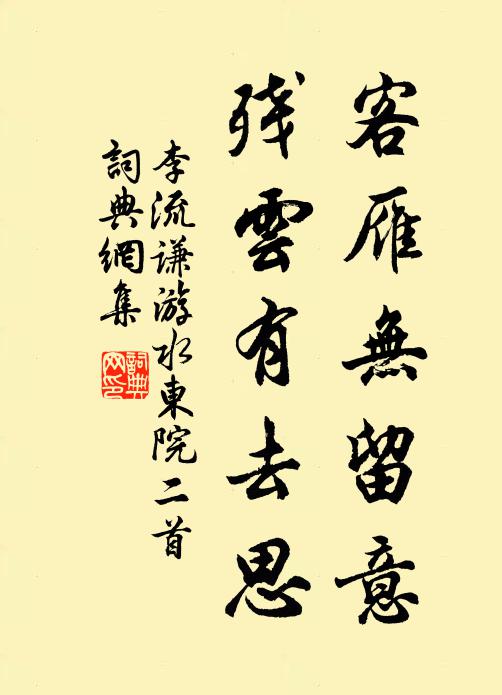 客雁無留意
残雲有去思
李流谦游水東院二首
詞典網集
詞典
网印